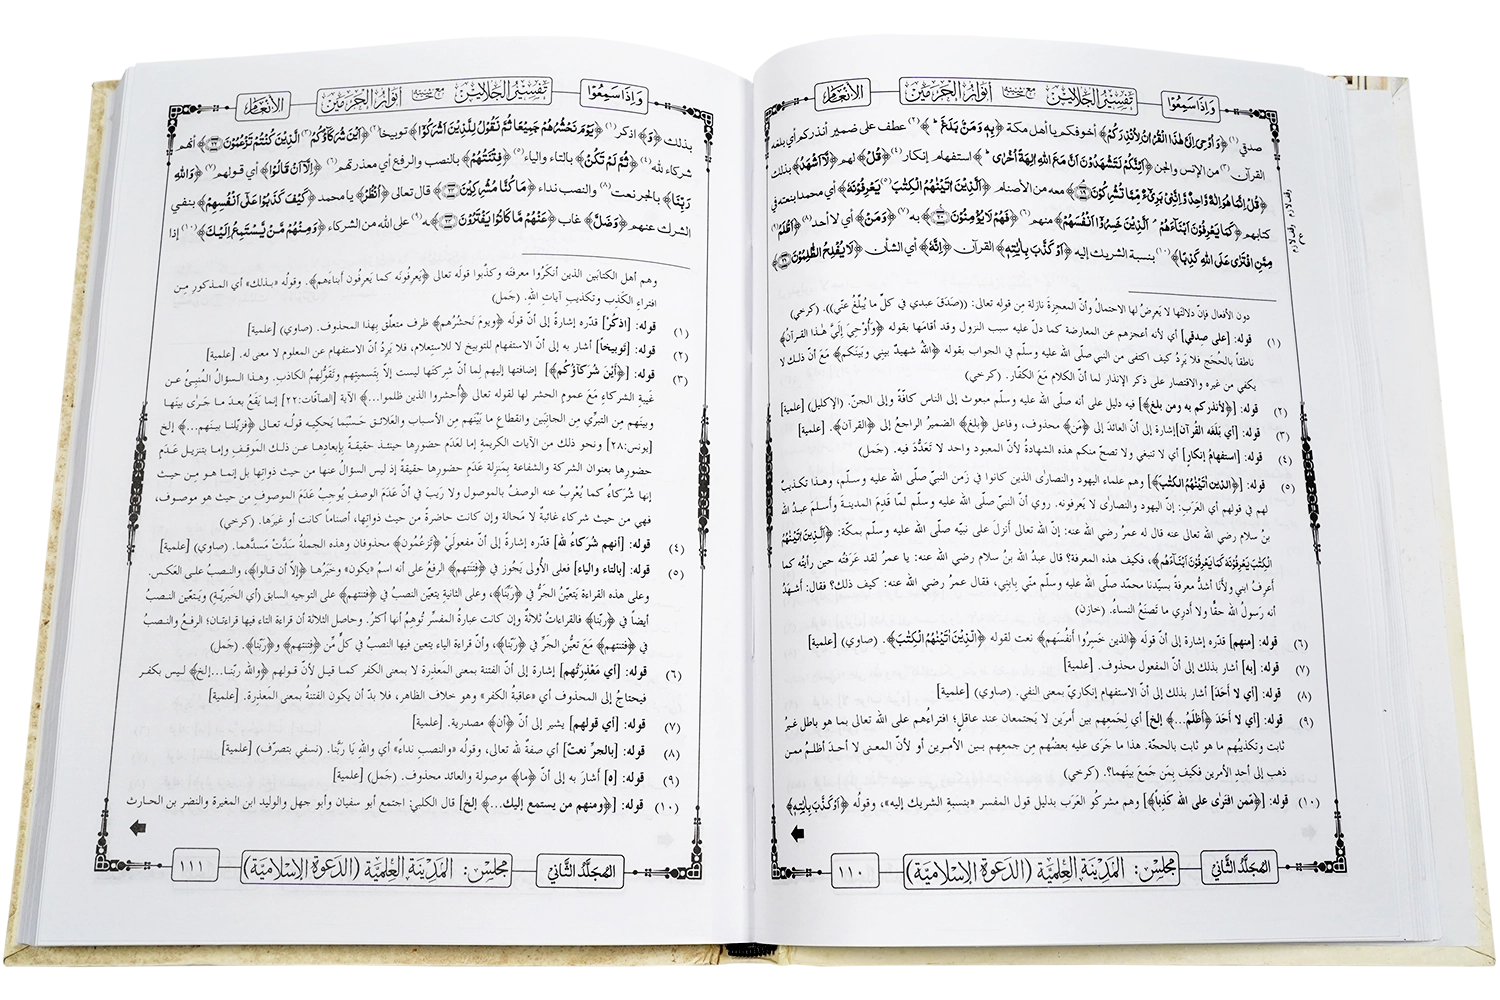 وَإِذَا سَمِعُوْا
تَفْسِيْرُ الْجَلَالَيْن مع حاشية أنْوَارُ الْحَرَمَيْن
الأنْعَام
صدقي (١) ﴿وَأُوْحِىَ اِلَىَّ هٰذَا الْقُرْاٰنُ لِاُنْذِرَكُمْ﴾ أخوفكم يا أهل مكة ﴿بِهٖ وَمَنْ بَلَغَ ؕ﴾ (٢) عطف على ضمير أنذركم أي بلغه
القرآن (٣) من الإنس والجن ﴿اَئِنَّكُمْ لَتَشْهَدُوْنَ اَنَّ مَعَ اللهِ اٰلِهَةً اُخْرٰى ؕ﴾ استفهام إنكار (٤) ﴿قُلْ﴾ لهم ﴿لَّاۤ اَشْهَدُ﴾ بذلك
﴿قُلْ اِنَّمَا هُوَ اِلٰهٌ وَّاحِدٌ وَّاِنَّنِىْ بَرِىْٓءٌ مِّمَّا تُشْرِكُوْنَ ۝١٩﴾ معه من الأصنام ﴿اَلَّذِيْنَ اٰتَيْنٰهُمُ الْكِتٰبَ (٥) يَعْرِفُوْنَهٗ﴾ أي محمدا بنعته في
كتابهم ﴿كَمَا يَعْرِفُوْنَ اَبْنَآءَهُمْ ۘ اَلَّذِيْنَ خَسِرُوْۤا اَنْفُسَهُمْ﴾ منهم (٦) ﴿فَهُمْ لَا يُؤْمِنُوْنَ ۝٢٠﴾ به (٧) ﴿وَمَنْ﴾ أي لا أحد (٨) ﴿اَظْلَمُ (٩)
مِمَّنِ افْتَرٰى عَلَى اللهِ كَذِبًا﴾ (١٠) بنسبة الشريك إليه ﴿اَوْ كَذَّبَ بِاٰيٰتِهٖ﴾ القرآن ﴿اِنَّهٗ﴾ أي الشأن ﴿لَا يُفْلِحُ الظّٰلِمُوْنَ ۝٢١﴾
دون الأفعال فإنّ دلالتها لا يَعرِضُ لها الاحتمالُ وأنّ المعجزةَ نازلة مِن قوله تعالى: ((صَدَقَ عبدي في كلّ ما يُبلِّغُ عنّي)). (كرخي)
(١) قوله: [على صِدقي] أي لأنه أعجزهم عن المعارضة كما دلّ عليه سبب النزول وقد أقامَها بقوله ﴿وَأُوْحِيَ إِلَيَّ هٰذا القرآنُ﴾
ناطقاً بالحُجَج فلا يَرِدُ كيف اكتفى من النبي صلّى الله عليه وسلّم في الجواب بقوله ﴿اللهُ شهيدٌ بيني وبَينَكم﴾ مَعَ أنّ ذلك لا
يكفي من غيره والاقتصار على ذكر الإنذار لما أنّ الكلام مَعَ الكفّار. (كرخي)
(٢) قوله: [﴿لأنذركم به ومن بلغ﴾] فيه دليل على أنه صلّى الله عليه وسلّم مبعوث إلى الناس كافّة وإلى الجنّ. (الإكليل) [علمية]
(٣) قوله: [أي بَلَغَه القُرآن] إشارة إلى أنّ العائدَ إلى ﴿مَن﴾ محذوف، وفاعل ﴿بلغ﴾ الضميرُ الراجع إلى ﴿القرآن﴾. [علمية]
(٤) قوله: [استفهامُ إنكار] أي لا تنبغي ولا تصحّ منكم هذه الشهادةُ لأنّ المعبود واحد لا تَعَدُّدَ فيه. (جَمل)
(٥) قوله: [﴿الذين اٰتَيْنٰهُمُ الكِتٰبَ﴾] وهم علماء اليهود والنصارى الذين كانوا في زَمن النبيّ صلّى الله عليه وسلّم، وهذا تكذيبٌ
لهم في قولهم أي العَرَبِ: إنّ اليهود والنصارى لا يعرفونه. روي أنّ النبيّ صلّى الله عليه وسلّم لمّا قَدِمَ المدينةَ وأسلَمَ عبدُ الله
بنُ سلام رضي الله تعالى عنه قال له عمرُ رضي الله عنه: إنّ الله تعالى أنزلَ على نبيّه صلّى الله عليه وسلّم بمكّة: ﴿اَلَّذِيْنَ اٰتَيْنٰهُمُ
الْكِتٰبَ يَعْرِفُوْنَهٗ كَمَا يَعْرِفُوْنَ اَبْنَآءَهُمْ﴾، فكيف هذه المعرفة؟ قال عبدُ الله بنُ سلام رضي الله عنه: يا عمرُ لقد عَرَفتُه حين رأيتُه كما
أعرِفُ ابني ولأنا أشدُّ معرفةً بسيّدنا محمّد صلّى الله عليه وسلّم منّي بِابني، فقال عمرُ رضي الله عنه: كيف ذلك؟ فقال: أشهَدُ
أنه رَسولُ الله حقًّا ولا أدرِي ما تَصنَعُ النساءُ. (خازن)
(٦) قوله: [منهم] قدّره إشارة إلى أنّ قولَه ﴿الذين خَسِرُوا أنفسَهم﴾ نعت لقوله ﴿اَلَّذِيْنَ اٰتَيْنٰهُمُ الْكِتٰبَ﴾. (صاوي) [علمية]
(٧) قوله: [به] أشار بذلك إلى أنّ المفعول محذوف. [علمية]
(٨) قوله: [أي لا أحَدَ] أشار بذلك إلى أنّ الاستفهام إنكاريّ بمعنى النفي. (صاوي) [علمية]
(٩) قوله: [أي لا أحَدَ ﴿أظلَمُ...﴾ إلخ] أي لِجَمعِهم بين أمرَين لا يَجتمعان عند عاقل؛ افتراءهم على الله تعالى بما هو باطل غيرُ
ثابت وتكذيبُهم ما هو ثابت بالحجّة. هذا ما جَرَى عليه بعضُهم مِن جمعِهم بين الأمرين أو لأنّ المعنى لا أحدَ أظلمُ ممن
ذهب إلى أحدِ الأمرين فكيف بِمَن جَمعَ بينَهما؟. (كرخي)
(١٠) قوله: [﴿مّمن افترٰى على الله كَذِباً﴾] وهم مشركو العَرَب بدليل قول المفسر «بنسبةِ الشريك إليه»، وقولُه ﴿اَوْ كَذَّبَ بِاٰيٰتِهٖ﴾
المُجَلَّدُ الثَّانِيْ
مَجْلِسُ: الْمَدِيْنَةِ الْعِلْمِيَّة (الدَّعْوَة الإِسْلَامِيَّة)
١١٠
وَإِذَا سَمِعُوْا
تَفْسِيْرُ الْجَلَالَيْن مع حاشية أنْوَارُ الْحَرَمَيْن
الأنْعَام
بذلك ﴿وَ﴾ اذكر (١) ﴿يَوْمَ نَحْشُرُهُمْ جَمِيْعًا ثُمَّ نَقُوْلُ لِلَّذِيْنَ اَشْرَكُوْۤا﴾ توبيخا (٢) ﴿اَيْنَ شُرَكَآؤُكُمُ (٣) الَّذِيْنَ كُنْتُمْ تَزْعُمُوْنَ ۝٢٢﴾ أنهم
شركاء لله (٤) ﴿ثُمَّ لَمْ تَكُنْ﴾ بالتاء والياء (٥) ﴿فِتْنَتُهُمْ﴾ بالنصب والرفع أي معذرتهم (٦) ﴿اِلَّاۤ اَنْ قَالُوْا﴾ أي قولهم (٧) ﴿وَاللهِ
رَبِّنَا﴾ بالجر نعت (٨) والنصب نداء ﴿مَا كُنَّا مُشْرِكِيْنَ ۝٢٣﴾ قال تعالى ﴿اُنْظُرْ﴾ يا محمد ﴿كَيْفَ كَذَبُوْا عَلٰۤى اَنْفُسِهِمْ﴾ بنفي
الشرك عنهم ﴿وَضَلَّ﴾ غاب ﴿عَنْهُمْ مَّا كَانُوْا يَفْتَرُوْنَ ۝٢٤﴾ ـه (٩) على الله من الشركاء ﴿وَمِنْهُمْ مَّنْ يَّسْتَمِعُ اِلَيْكَ﴾ (١٠) إذا
وهم أهل الكتابَين الذين أنكَرُوا معرفتَه وكذّبوا قولَه تعالى ﴿يَعرِفُونَه كما يَعرِفون أبناءَهم﴾. وقولُه «بذلك» أي المذكور مِن
افتراءِ الكَذِب وتكذيبِ آياتِ اللهِ. (جَمل)
(١) قوله: [اذكُرْ] قدّره إشارةً إلى أنّ قولَه ﴿ويومَ نَحشُرُهم﴾ ظرف متعلّق بهذا المحذوف. (صاوي) [علمية]
(٢) قوله: [تَوبيخاً] أشار به إلى أنّ الاستفهامَ للتوبيخ لا للاستِعلام، فلا يَرِدُ أنّ الاستفهام عن المعلوم لا معنى له. [علمية]
(٣) قوله: [﴿أيْنَ شُرَكاؤُكُم﴾] إضافتها إليهم لِما أنّ شركتَها ليست إلاّ بتَسميتِهم وتَقَوُّلِهم الكاذب. وهذا السؤالُ المُنبِئُ عن
غَيبةِ الشركاءِ مَعَ عمومِ الحشرِ لها لقوله تعالى ﴿أُحشُروا الذين ظلموا...﴾ الآية [الصافّات:٢٢] إنما يَقَعُ بعدَ ما جَرَى بينَها
وبينَهم مِن التبرّي من الجانبَين وانقطاعِ ما بَيْنَهم مِن الأسباب والعَلائق حَسبَما يَحكيه قولُه تعالى ﴿فزيّلنا بينَهم...﴾ إلخ
[يونس:٢٨] ونحو ذلك من الآيات الكريمةِ إما لعَدَم حضورِها حينئذ حقيقةً بإبعادِها عن ذلك المَوقِف وإما بتنزيل عَدَمِ
حضورِها بعنوان الشركة والشفاعة بمَنزلة عَدَمِ حضورِها حقيقةً إذ ليس السؤالُ عنها من حيث ذواتها بل إنما هو مِن حيث
إنها شُرَكاء كما يُعْرِبُ عنه الوصفُ بالموصول ولا رَيبَ في أنّ عَدَمَ الوصف يُوجِبُ عَدَمَ الموصوف من حيث هو موصوف،
فهي من حيث شركاء غائبةٌ لا مَحالةَ وإن كانت حاضرةً من حيث ذواتِها، أصناماً كانت أو غيرَها. (كرخي)
(٤) قوله: [أنهم شُركاءُ لله] قدّره إشارةً إلى أنّ مفعولَيْ ﴿تَزعُمُون﴾ محذوفان وهذه الجملةُ سَدَّتْ مَسدَّهما. (صاوي) [علمية]
(٥) قوله: [بالتاء والياء] فعلى الأولى يَجُوز في ﴿فِتنتهم﴾ الرفعُ على أنه اسمُ «يكون» وخبرُها ﴿إلاّ أن قالوا﴾، والنصبُ على العَكس.
وعلى هذه القراءةِ يَتعيَّنُ الجرُّ في ﴿ربِّنا﴾، وعلى الثانيةِ يتعيّن النصبُ في ﴿فتنتهم﴾ على التوجيه السابق (أي الخبريّة) ويَتعيّن النصبُ
أيضاً في ﴿ربنا﴾ فالقراءاتُ ثلاثةٌ وإن كانت عبارةُ المفسّر تُوهِمُ أنها أكثرُ. وحاصل الثلاثة أن قراءة التاء فيها قراءتان؛ الرفعُ والنصبُ
في ﴿فتنتهم﴾ مَعَ تعيُّنِ الجرّ في ﴿ربّنا﴾، وأن قراءةَ الياء يتعين فيها النصبُ في كلٍّ مِّن ﴿فتنتهم﴾ و﴿ربّنا﴾. (جَمل)
(٦) قوله: [أي مَعْذِرَتُهم] إشارة إلى أنّ الفتنة بمعنى المَعذِرة لا بمعنى الكفر كما قيل لأنّ قولهم ﴿والله ربّنا...إلخ﴾ ليس بكفر
فيحتاجُ إلى المحذوف أي «عاقبة الكفر» وهو خلاف الظاهر، فلا بدّ أن يكون الفتنة بمعنى المَعذِرة. [علمية]
(٧) قوله: [أي قولهم] يشير إلى أنّ ﴿أن﴾ مصدرية. [علمية]
(٨) قوله: [بالجرّ نعتٌ] أي صفةٌ لله تعالى، وقولُه «والنصبِ نداءٌ» أي والله يَا ربَّنا. (نسفي بتصرّف) [علمية]
(٩) قوله: [ه] أشارَ به إلى أنّ ﴿ما﴾ موصولة والعائد محذوف. (جَمل) [علمية]
(١٠) قوله: [﴿ومنهم من يستمع إليك...﴾ إلخ] قال الكلبيّ: اجتمع أبو سفيان وأبو جهل والوليد ابن المغيرة والنضر بن الحارث
المُجَلَّدُ الثَّانِيْ
مَجْلِسُ: الْمَدِيْنَةِ الْعِلْمِيَّة (الدَّعْوَة الإِسْلَامِيَّة)
١١١